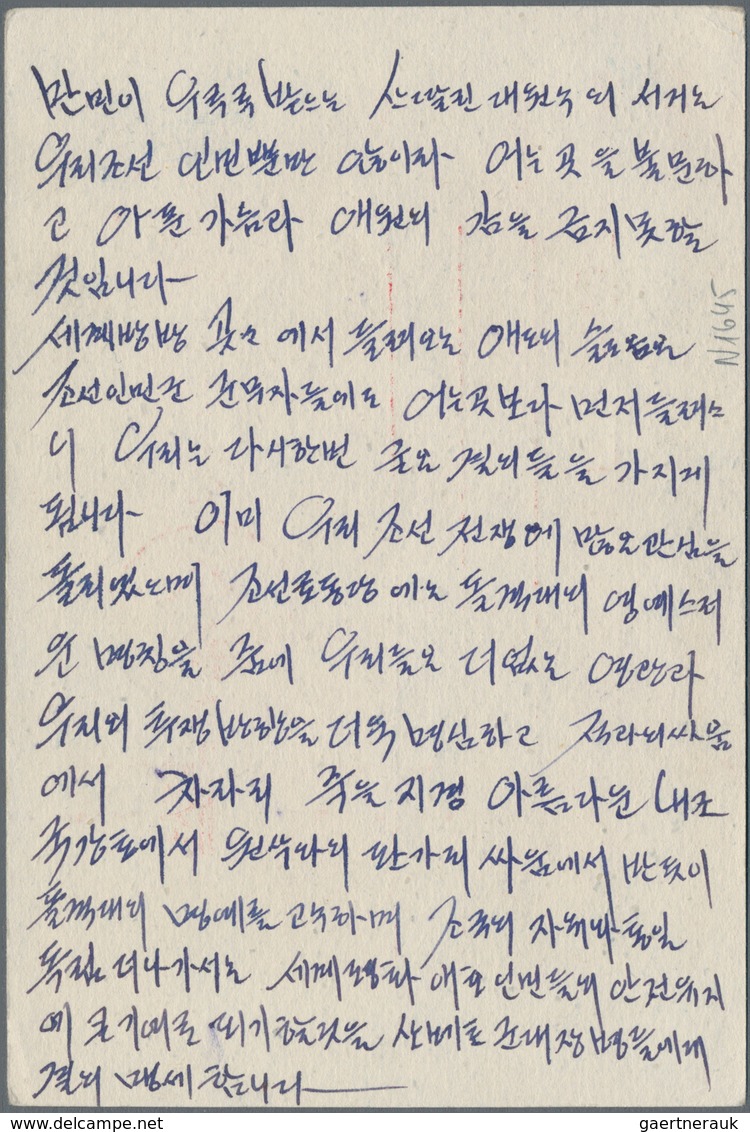 만민이 우르르 받느는 스딸린 대원수의 서거는
우리조선 인민뿐만 아니라 어는 곳을 불문하
고 아픈 가슴과 애원의 감을 금지 못할
것입니다
세계방방 곳々에서 들려오는 애도의 슬픔은
조선인민군 군무자들에도 어는곳보다 먼저 들려으
니 우리는 다시한번 굳은 결의들을 가지게
됩니다 이미 우리 조선 전쟁에 많은 관심을
돌리였으며 조선로동당에는 돌격대의 영예스러
운 명칭을 줌에 우리들은 더없는 영광과
우리의 투쟁방향을 더욱 명심하고 적과의 싸움
에서 차라리 죽을 지경 아름다운 내조
국강토에서 원쑤와의 판가리 싸움에서 반듯이
돌격대의 명예를 고수하며 조국의 자유와 통일
독립 더나가서는 세계평화 애호 인민들의 안전유지
에 큰 기여로 되기할것을 군대장병들에게
결의 맹세 합니다
N1645
gaertnerauk